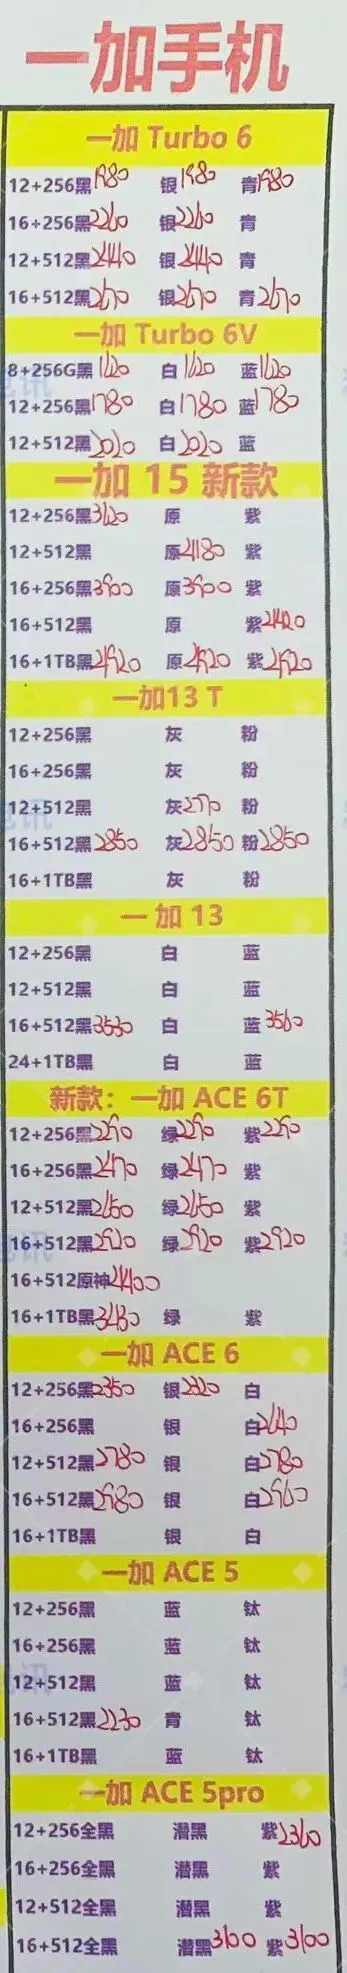 一加手机
一加 Turbo 6
12+256黑1980 银1980 青1980
16+256黑2260 银2260 青
12+512黑2440 银2440 青
16+512黑2670 银2670 青2670
一加 Turbo 6V
8+256G黑1620 白1620 蓝1620
12+256黑1780 白1780 蓝1780
12+512黑2020 白2020 蓝
一加 15 新款
12+256黑3620 原 紫
12+512黑 原4180 紫
16+256黑3900 原3900 紫
16+512黑 原 紫4420
16+1TB黑4920 原4920 紫4920
一加13 T
12+256黑 灰 粉
16+256黑 灰 粉
12+512黑 灰2770 粉
16+512黑2850 灰2850 粉2850
16+1TB黑 灰 粉
一加 13
12+256黑 白 蓝
12+512黑 白 蓝
16+512黑3530 白 蓝3560
24+1TB黑 白 蓝
新款：一加 ACE 6T
12+256黑2290 绿2290 紫2290
16+256黑2470 绿2470 紫
12+512黑2650 绿2650 紫
16+512黑2920 绿2920 紫2920
16+512原神
16+1TB黑3430 绿 紫
一加 ACE 6
12+256黑2350 银2320 白
16+256黑 银 白2640
12+512黑2780 银 白2780
16+512黑2980 银 白2960
16+1TB黑 银 白
一加 ACE 5
12+256黑 蓝 钛
16+256黑 蓝 钛
12+512黑 蓝 钛
16+512黑2230 青 钛
16+1TB黑 蓝 钛
一加 ACE 5pro
12+256全黑 潜黑 紫2360
16+256全黑 潜黑 紫
12+512全黑 潜黑 紫
16+512全黑 潜黑3100 紫3100